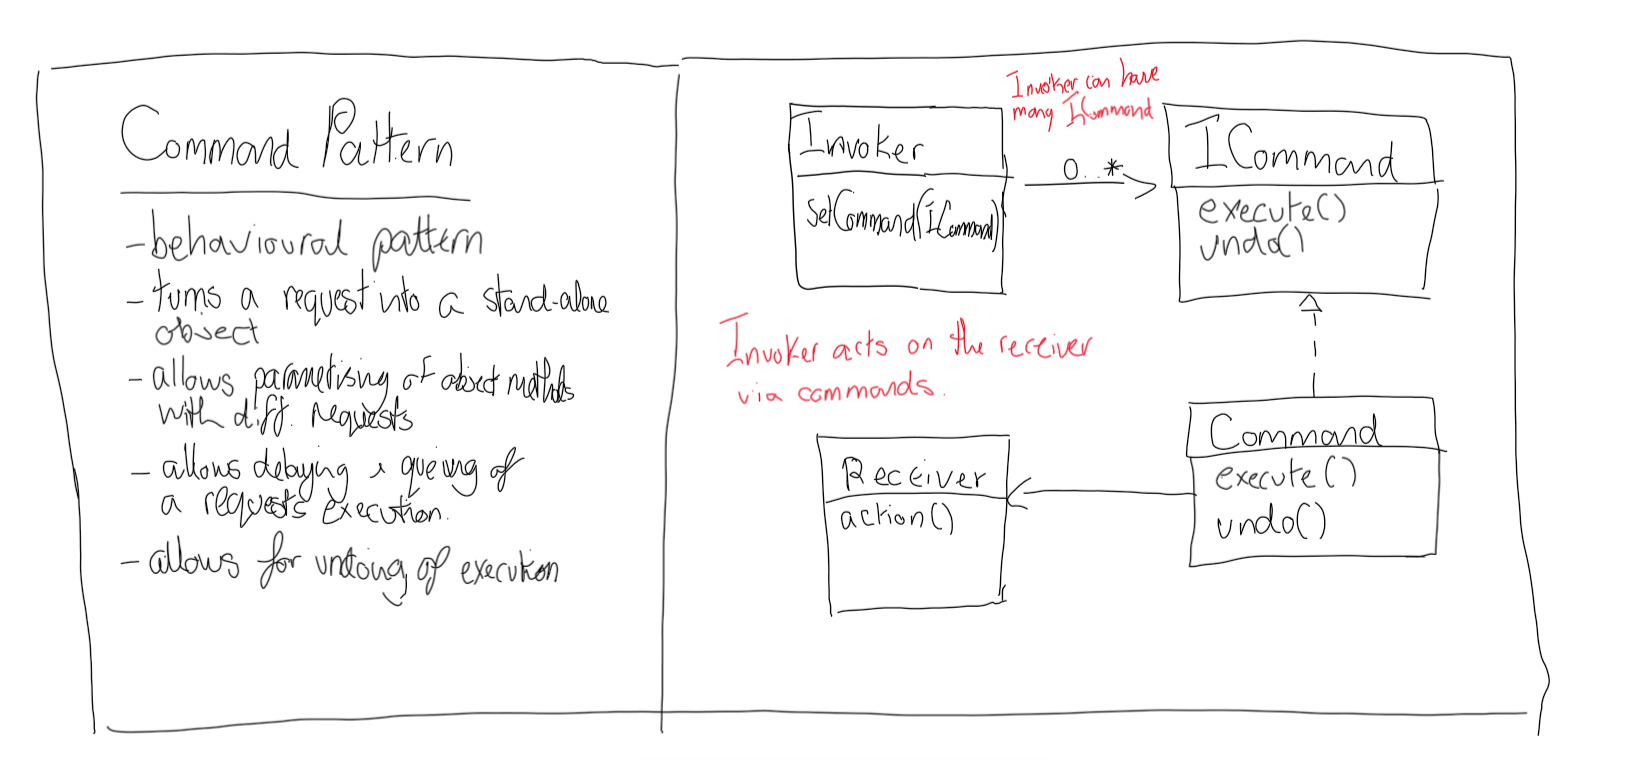 Command Pattern
- behavioural pattern
- turns a request into a stand-alone
object
- allows parametising of object methods
with diff. requests
- allows delaying & queing of
a requests execution.
- allows for undoing of execution
Invoker can have
many ICommand
Invoker
setCommand(ICommand)
0..*
ICommand
execute()
undo()
Invoker acts on the receiver
via commands.
Receiver
action()
Command
execute()
undo()